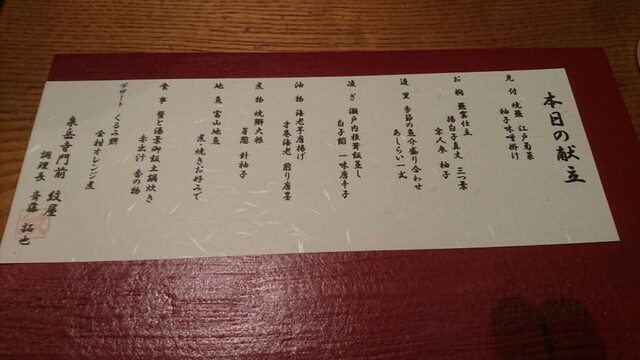 本日の献立
先付 焼蕪 江戸菊菜
柚子味噌掛け
お椀 霙雲仕立
揚白子真丈 三つ葉
京人参 柚子
造里 季節の魚介盛り合わせ
あしらい一式
凌ぎ 瀬戸内椎茸飯蒸し
白子餡 一味唐辛子
油物 海老芋唐揚げ
才巻海老 煎り唐墨
煮物 焼鰤大根
芽葱 針柚子
地魚 富山地魚
煮・焼きお好みで
食事 蟹と湯葉御飯土鍋炊き
赤出汁 香の物
デザート くるみ餅
金柑オレンジ煮
泉岳寺門前 紋屋
調理長 斉藤 拓也